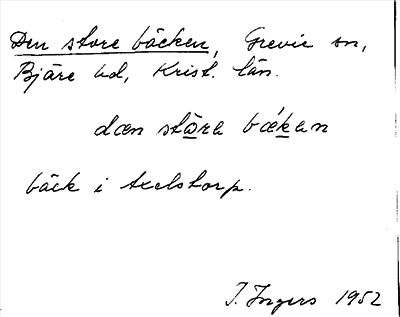 Den store bäcken, Grevie sn,
Bjäre hd, Krist. län.
dæn stora bækan
bäck i Axelstorp.
I. Ingers 1952